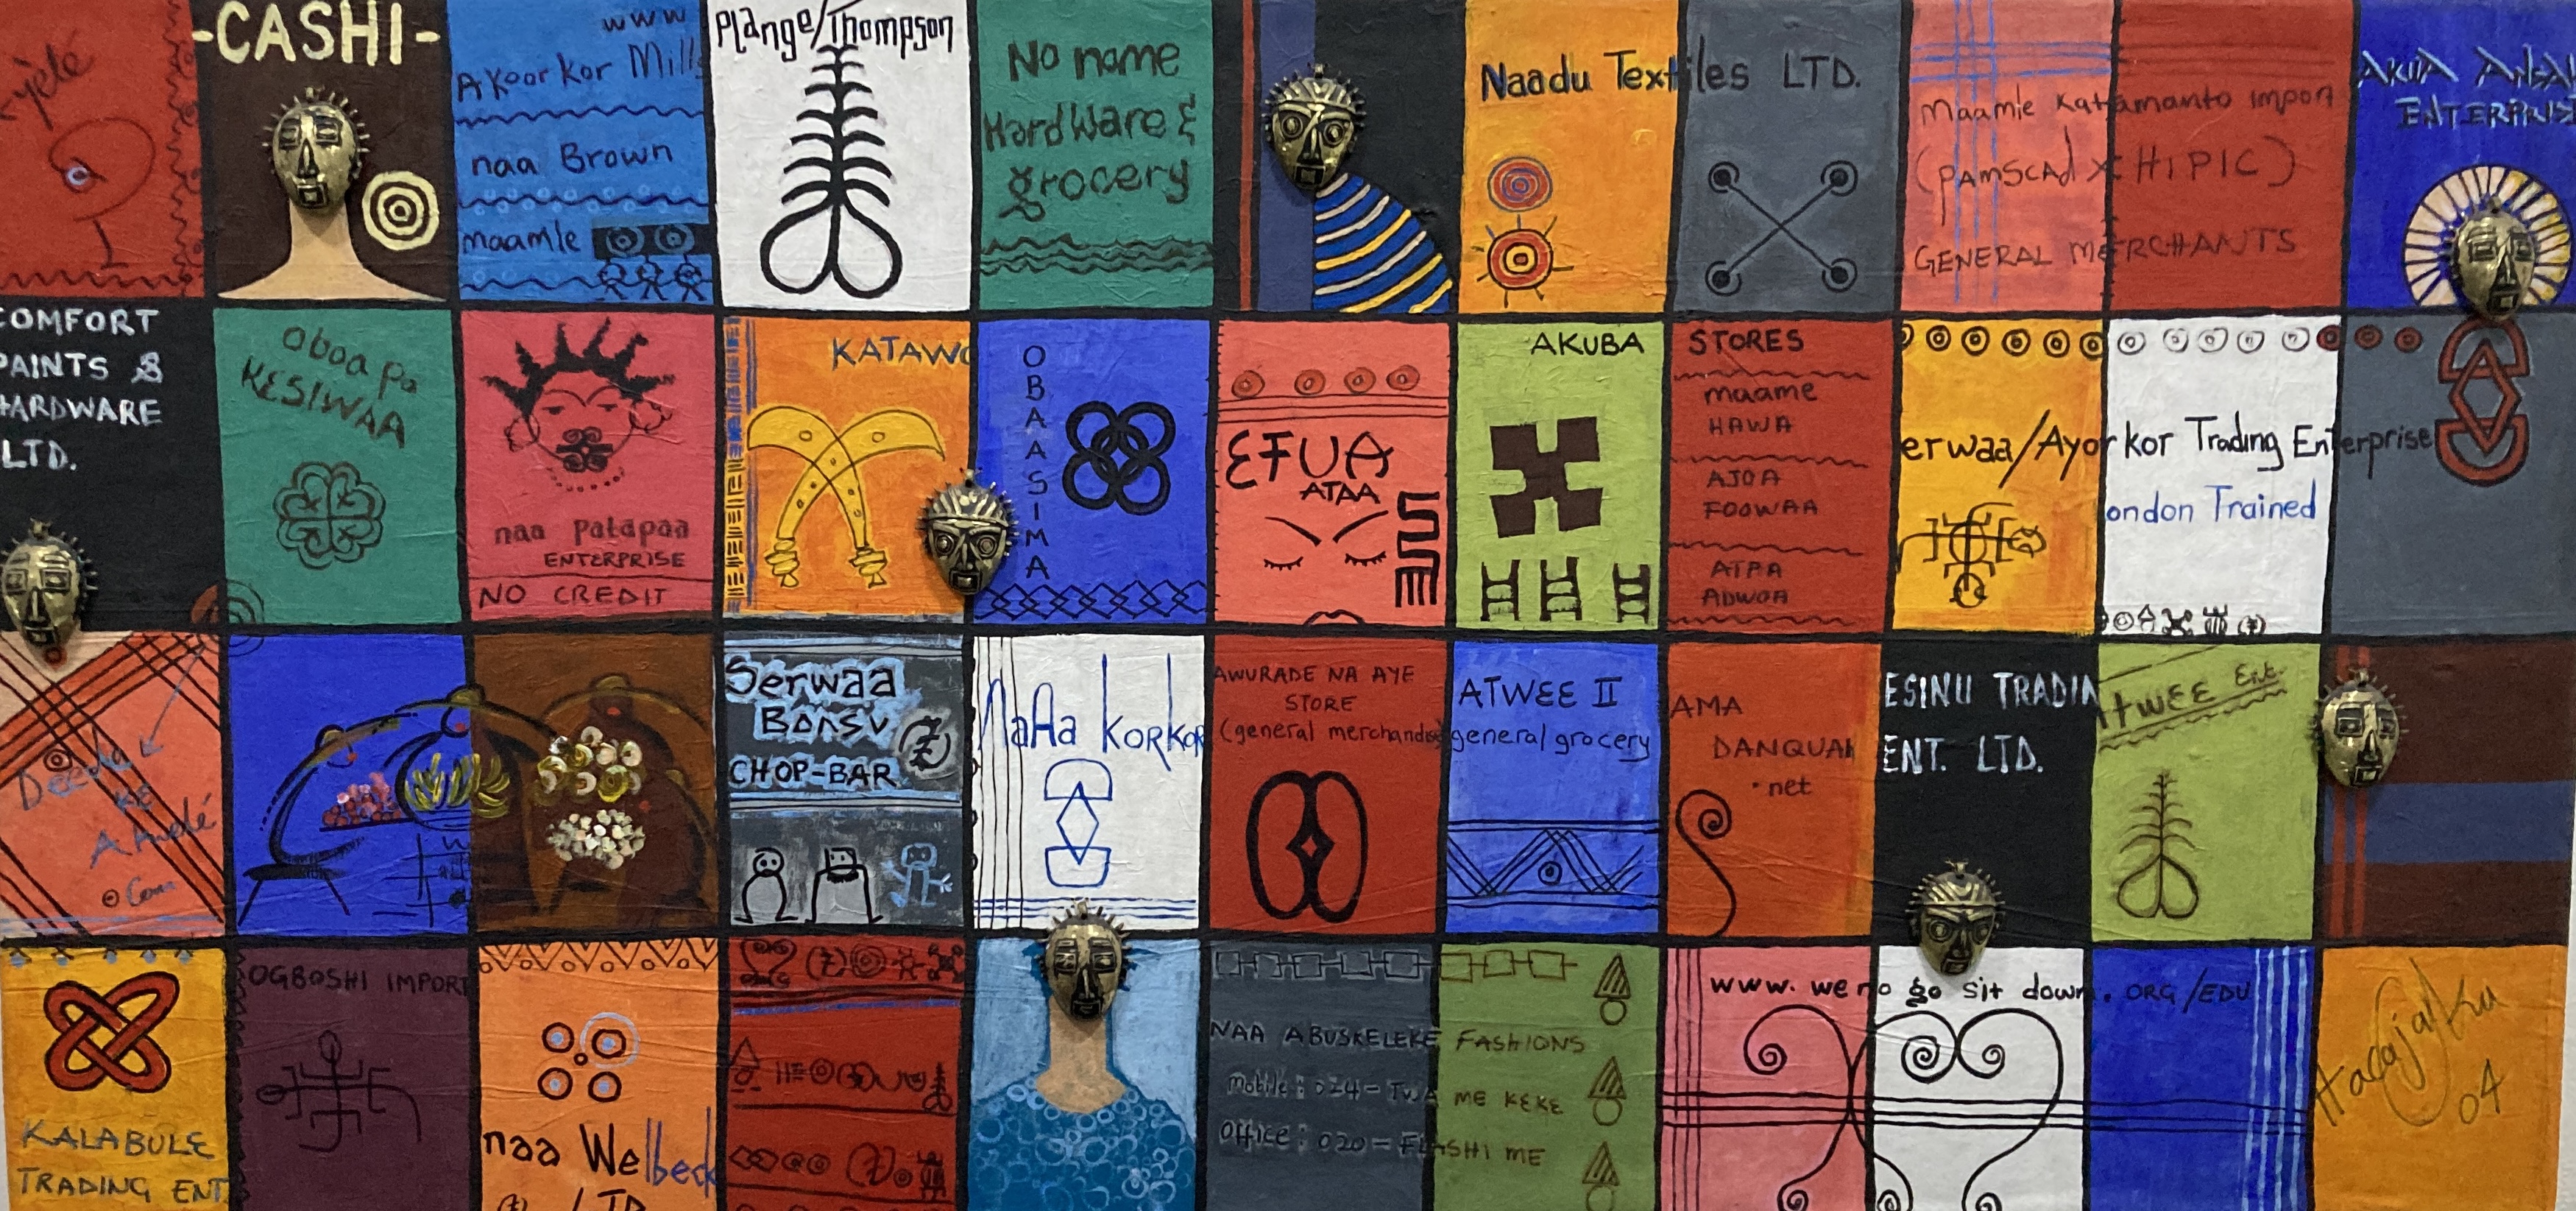 -CASHI-
www
Akoorkor Mills
naa Brown
maamle
Plange/Thompson
No name
Hardware &
grocery
Naadu Textiles LTD.
Maamle Katamanto import
(pamscad x HIPIC)
GENERAL MERCHANTS
AKUA
ENTERPRISE
COMFORT
PAINTS &
HARDWARE
LTD.
Obaa pa
KESIWAA
naa patapaa
ENTERPRISE
NO CREDIT
KATAWO
OBAASIMA
EFUA
ATAA
AKUBA STORES
maame
HAWA
AJOA
FOOWAA
ATAA
ADWOA
erwaa/Ayorkor Trading Enterprise
ondon Trained
Deeda
KE
Akwelé
Serwaa
Bonsu
CHOP-BAR
NaAa Korkor
AWURADE NA AYE
STORE
(general merchandise)
ATWEE II
general grocery
AMA
DANQUAH
.net
ESINU TRADIN
ENT. LTD.
Atwee Ent.
KALABULE
TRADING ENT
OGBOSHI IMPORT
naa Welbeck
LTD
NAA ABUSKELEKE FASHIONS
Mobile: 024- TWA ME KEKE
Office: 020- FLASHI ME
www. we no go sit down. ORG/EDU
04